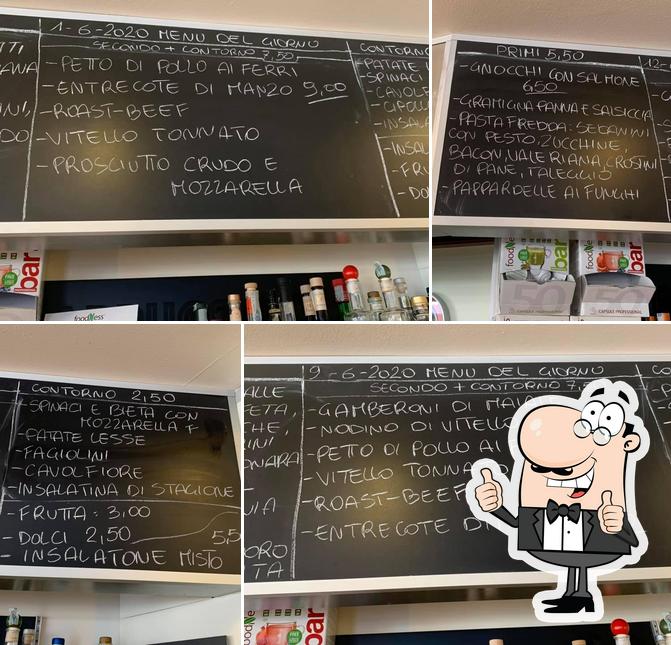 1-6-2020 MENU DEL GIORNO
SECONDO + CONTORNO 7,50
-PETTO DI POLLO AI FERRI
-ENTRECOTE DI MANZO 9,00
-ROAST-BEEF
-VITELLO TONNATO
-PROSCIUTTO CRUDO E
MOZZARELLA
CONTORNO
-PATATE
-SPINACI
foodNess
bar
PRIMI 5,50
-GNOCCHI CON SALMONE
6,50
-GRAMIGNA PANNA E SALSICCIA
-PASTA FREDDA: SEDANINI
CON PESTO, ZUCCHINE,
BACON, VALERIANA, CROSTINI
DI PANE, TALEGGIO
-PAPPARDELLE AI FUNGHI
bar
50
CAPSULE PROFESSIONAL
CONTORNO 2,50
-SPINACI E BIETA CON
MOZZARELLA F
-PATATE LESSE
-FAGIOLINI
-CAVOLFIORE
-INSALATINA DI STAGIONE
-FRUTTA = 3,00
-DOLCI 2,50
5,5
-INSALATONE MISTO
9-6-2020 MENU DEL GIORNO
SECONDO + CONTORNO 7,
-GAMBERONI DI
-NODINO DI VITELLO
-PETTO DI POLLO AI
-VITELLO
-ROAST-BEEF
-ENTRECOTE
bar